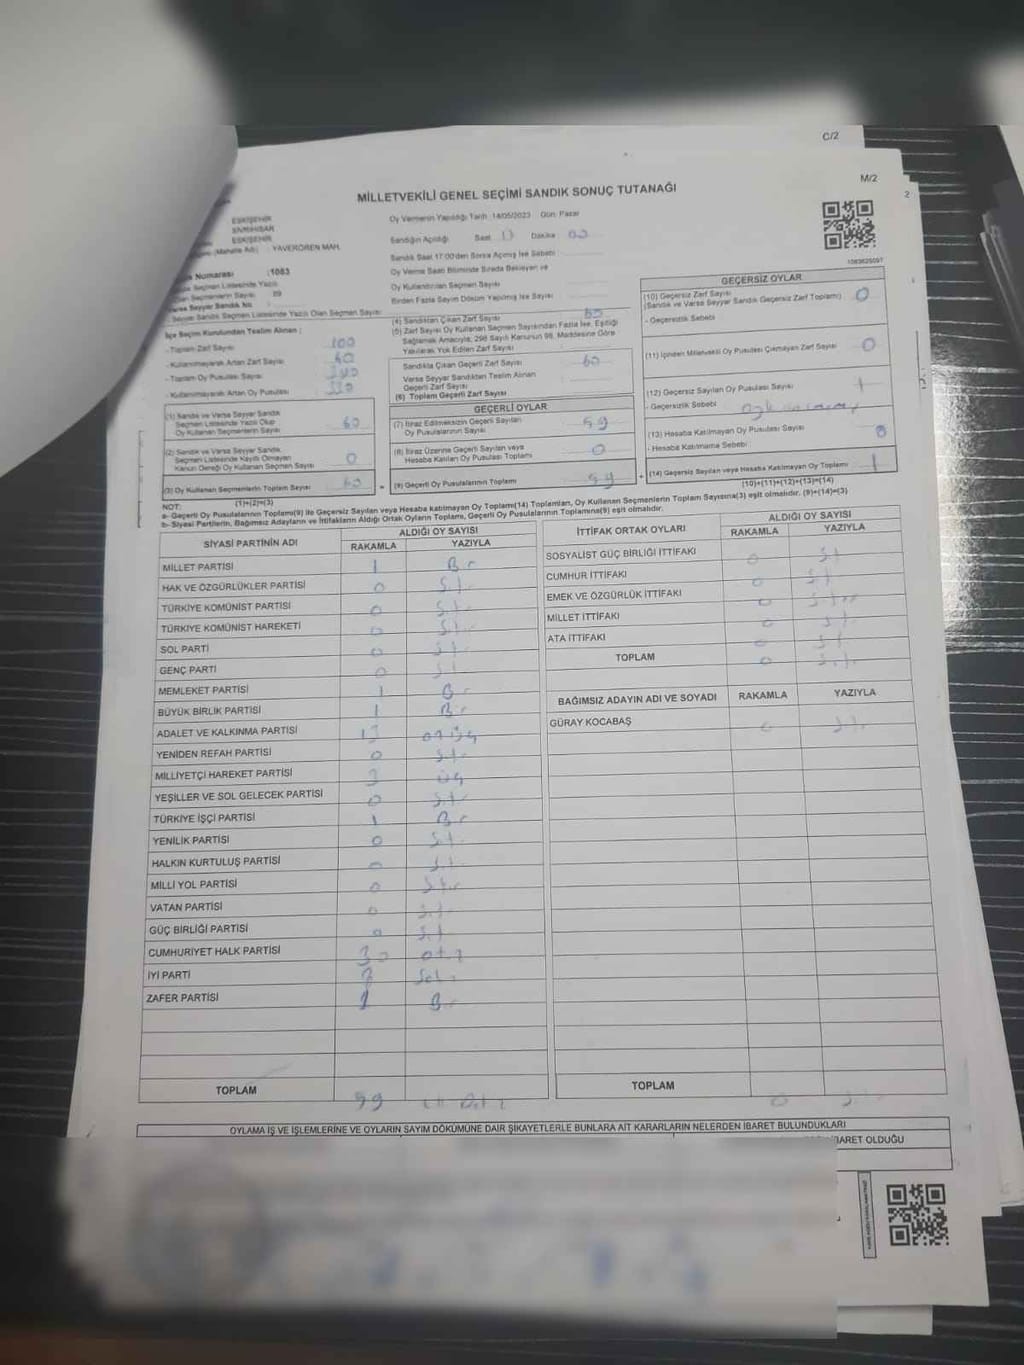 C/2
M/2
2
MİLLETVEKİLİ GENEL SEÇİMİ SANDIK SONUÇ TUTANAĞI
ESKİŞEHİR
ESKİŞEHİR
(Mahalle Adı) : YAVERÖREN MAH.
Numarası :1083
Seçmen Listesinde Yazılı
Seçmenlerin Sayısı : 89
Varsa Seyyar Sandık No :
Seyyar Sandık Seçmen Listesinde Yazılı Olan Seçmen Sayısı :
Oy Vermenin Yapıldığı Tarih :14/05/2023 Gün: Pazar
Sandığın Açıldığı Saat 17 Dakika 00
Sandık Saat 17:00'den Sonra Açılmış İse Sebebi :
Oy Verme Saati Bitiminde Sırada Bekleyen ve
Oy Kullandırılan Seçmen Sayısı
Birden Fazla Sayım Döküm Yapılmış İse Sayısı :
İlçe Seçim Kurulundan Teslim Alınan :
- Toplam Zarf Sayısı 100
- Kullanılmayarak Artan Zarf Sayısı 40
- Toplam Oy Pusulası Sayısı
- Kullanılmayarak Artan Oy Pusulası
(1) Sandık ve Varsa Seyyar Sandık
Seçmen Listesinde Yazılı Olup
Oy Kullanan Seçmenlerin Sayısı 60
(2) Sandık ve Varsa Seyyar Sandık
Seçmen Listesinde Kayıtlı Olmayan
Kanun Gereği Oy Kullanan Seçmen Sayısı 0
(3) Oy Kullanan Seçmenlerin Toplam Sayısı 60
(1)+(2)=(3)
(4) Sandıktan Çıkan Zarf Sayısı 60
(5) Zarf Sayısı Oy Kullanan Seçmen Sayısından Fazla İse, Eşitliği
Sağlamak Amacıyla; 298 Sayılı Kanunun 98. Maddesine Göre
Yakılarak Yok Edilen Zarf Sayısı
Sandıkta Çıkan Geçerli Zarf Sayısı 60
Varsa Seyyar Sandıktan Teslim Alınan
Geçerli Zarf Sayısı
(6) Toplam Geçerli Zarf Sayısı
GEÇERLİ OYLAR
(7) İtiraz Edilmeksizin Geçerli Sayılan
Oy Pusulasının Sayısı 59
(8) İtiraz Üzerine Geçerli Sayılan veya
Hesaba Katılan Oy Pusulası Toplamı 0
(9) Geçerli Oy Pusulalarının Toplamı 59
GEÇERSİZ OYLAR
(10) Geçersiz Zarf Sayısı
(Sandık ve Varsa Seyyar Sandık Geçersiz Zarf Toplamı) 0
- Geçersizlik Sebebi
(11) İçinden Milletvekili Oy Pusulası Çıkmayan Zarf Sayısı 0
(12) Geçersiz Sayılan Oy Pusulası Sayısı 1
- Geçersizlik Sebebi
(13) Hesaba Katılmayan Oy Pusulası Sayısı 0
- Hesaba Katılmama Sebebi :
(14) Geçersiz Sayılan veya Hesaba Katılmayan Oy Toplamı 1
(10)+(11)+(12)+(13)=(14)
NOT:
a- Geçerli Oy Pusulasının Toplamı(9) ile Geçersiz Sayılan veya Hesaba katılmayan Oy Toplamı(14) Toplamları, Oy Kullanan Seçmenlerin Toplam Sayısına(3) eşit olmalıdır. (9)+(14)=(3)
b- Siyasi Partilerin, Bağımsız Adayların ve İttifakların Aldığı Ortak Oyların Toplamı, Geçerli Oy Pusulalarının Toplamına(9) eşit olmalıdır.
SİYASİ PARTİNİN ADI ALDIĞI OY SAYISI
RAKAMLA YAZIYLA
MİLLET PARTİSİ 1 Bir
HAK VE ÖZGÜRLÜKLER PARTİSİ 0 Sıfır
TÜRKİYE KOMÜNİST PARTİSİ 0 Sıfır
TÜRKİYE KOMÜNİST HAREKETİ 0 Sıfır
SOL PARTİ 0 Sıfır
GENÇ PARTİ 0 Sıfır
MEMLEKET PARTİSİ 1 Bir
BÜYÜK BİRLİK PARTİSİ 1 Bir
ADALET VE KALKINMA PARTİSİ 13 onüç
YENİDEN REFAH PARTİSİ 0 Sıfır
MİLLİYETÇİ HAREKET PARTİSİ 3 üç
YEŞİLLER VE SOL GELECEK PARTİSİ 0 Sıfır
TÜRKİYE İŞÇİ PARTİSİ 1 Bir
YENİLİK PARTİSİ 0 Sıfır
HALKIN KURTULUŞ PARTİSİ 0 Sıfır
MİLLİ YOL PARTİSİ 0 Sıfır
VATAN PARTİSİ 0 Sıfır
GÜÇ BİRLİĞİ PARTİSİ 0 Sıfır
CUMHURİYET HALK PARTİSİ 30 otuz
İYİ PARTİ 8 Sekiz
ZAFER PARTİSİ 1 Bir
TOPLAM 59
İTTİFAK ORTAK OYLARI ALDIĞI OY SAYISI
RAKAMLA YAZIYLA
SOSYALİST GÜÇ BİRLİĞİ İTTİFAKI 0 Sıfır
CUMHUR İTTİFAKI 0 Sıfır
EMEK VE ÖZGÜRLÜK İTTİFAKI 0 Sıfır
MİLLET İTTİFAKI 0 Sıfır
ATA İTTİFAKI 0 Sıfır
TOPLAM 0 Sıfır
BAĞIMSIZ ADAYIN ADI VE SOYADI RAKAMLA YAZIYLA
GÜRAY KOCABAŞ 0 Sıfır
TOPLAM 0
OYLAMA İŞ VE İŞLEMLERİNE VE OYLARIN SAYIM DÖKÜMÜNE DAİR ŞİKAYETLERLE BUNLARA AİT KARARLARIN NELERDEN İBARET BULUNDUKLARI
İBARET OLDUĞU